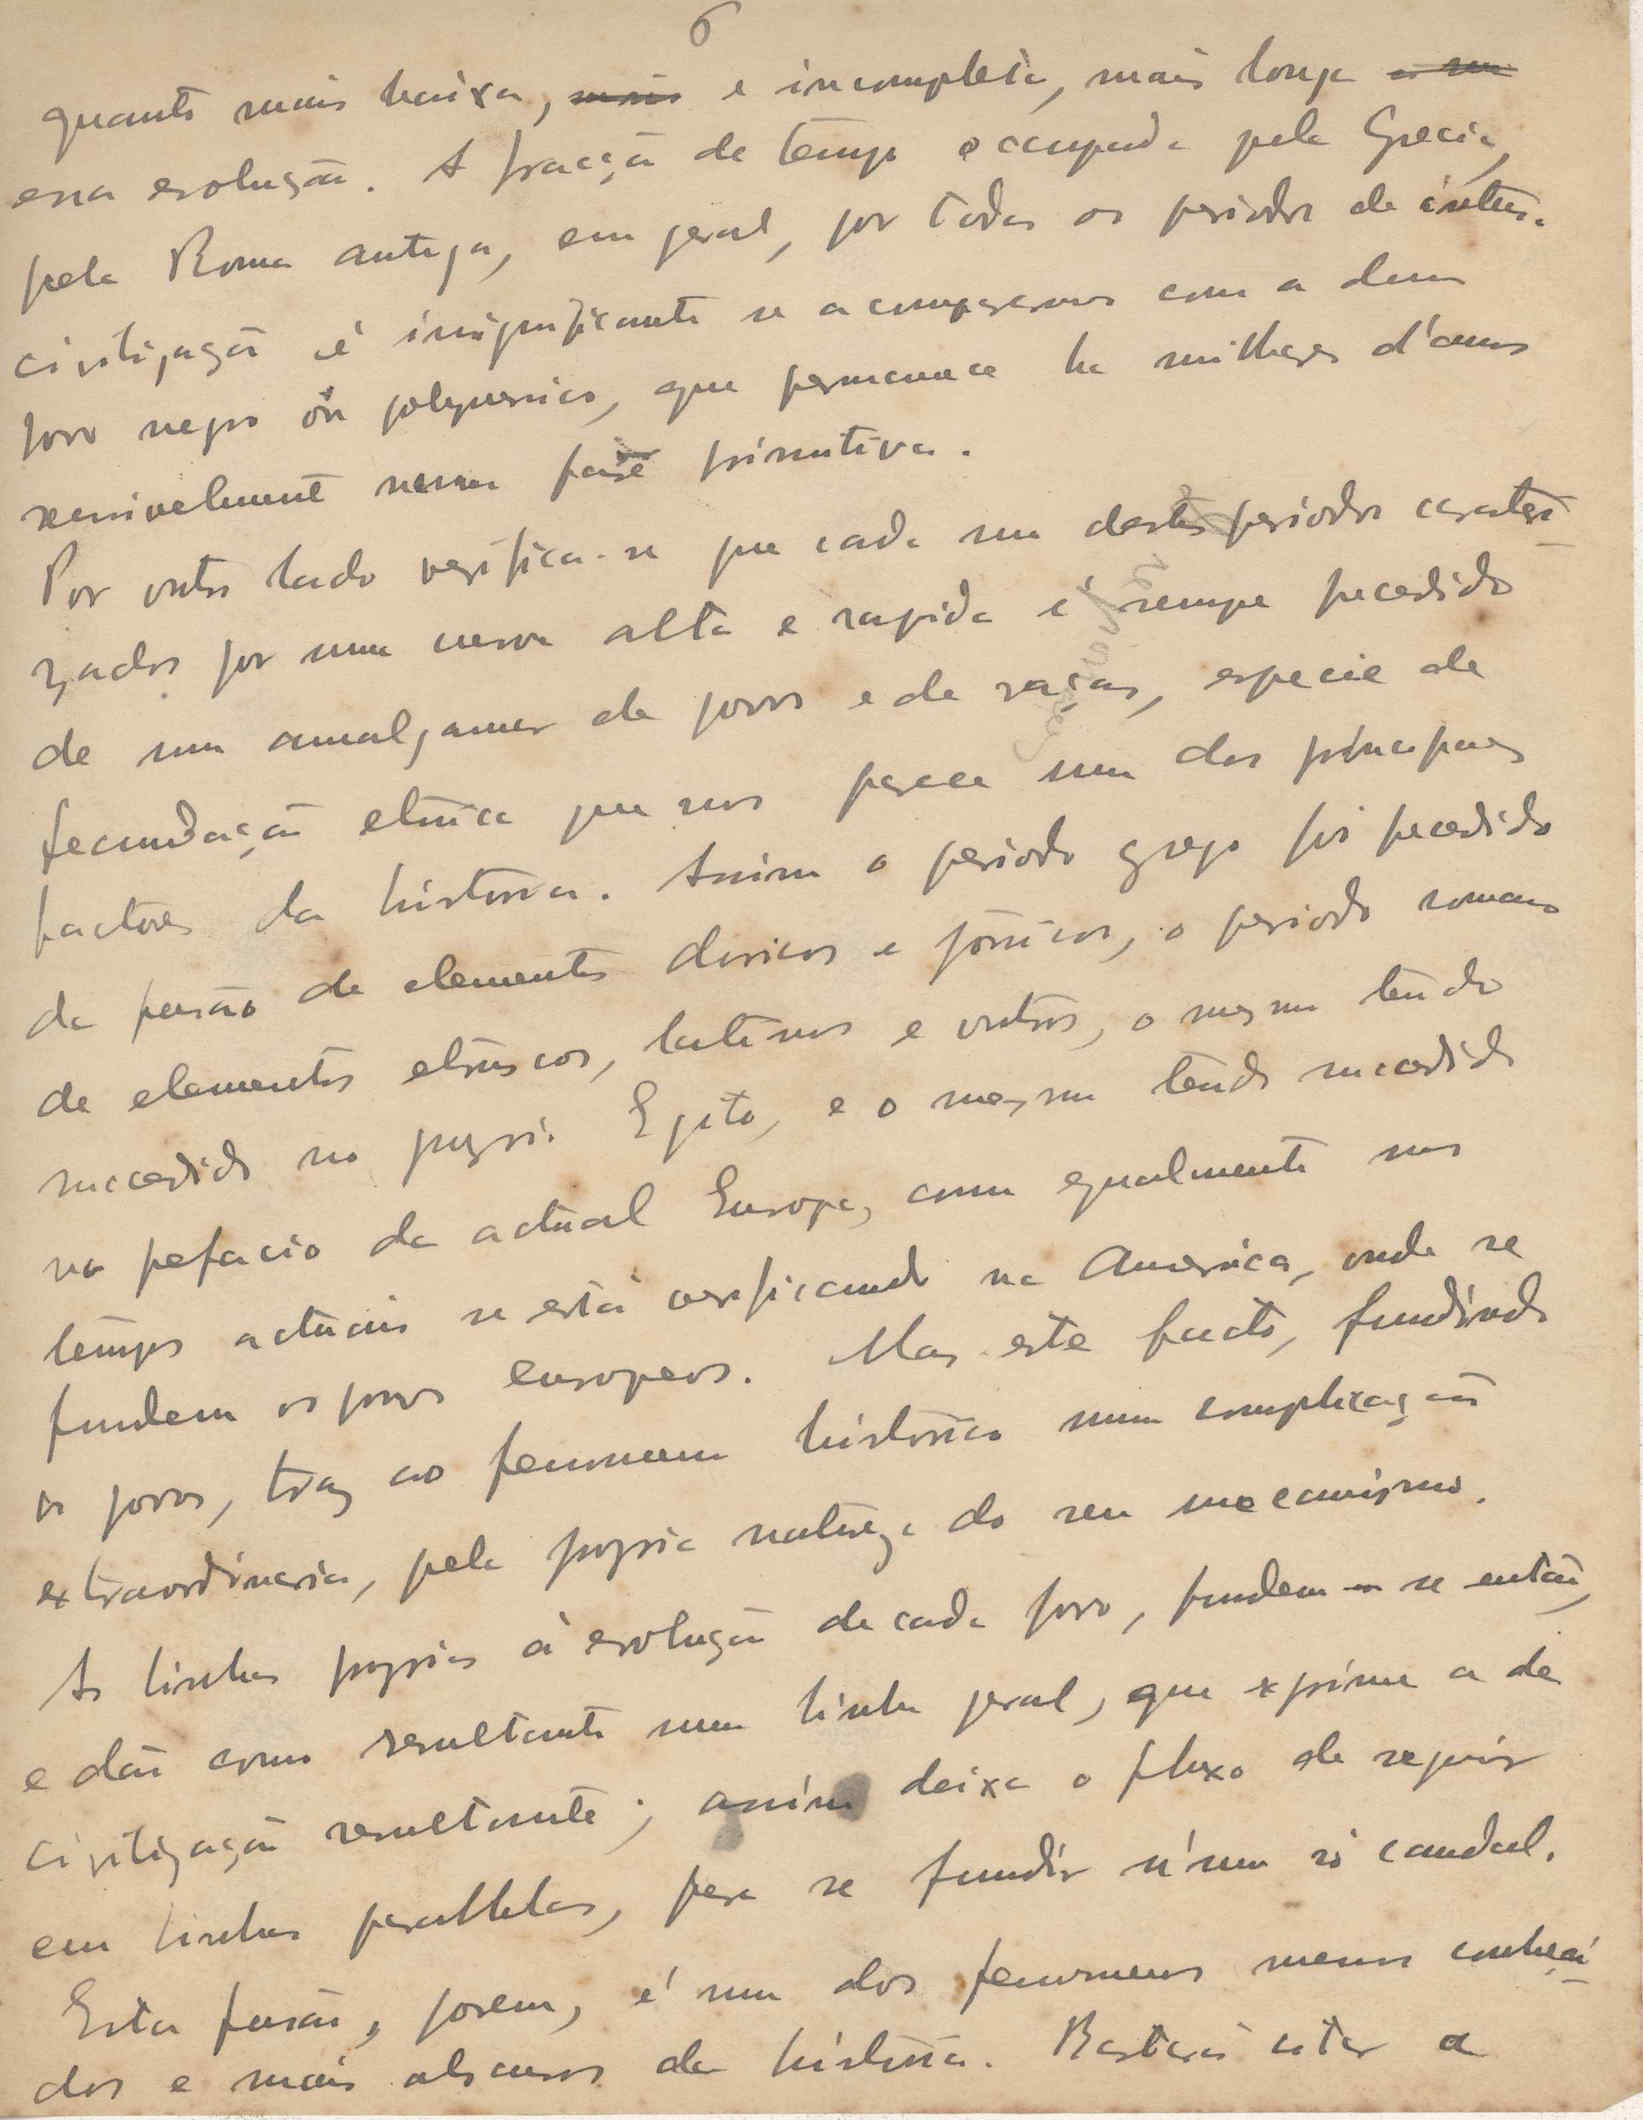 6
quanto mais baixa, mais e incompleta, mais longa
essa evolução. A fracção de tempo occupada pela Grecia,
pela Roma antiga, em geral, por todos os periodos de intensa
civilização é insignificante se a compararmos com a dum
povo negro ou polynesico, que permanece ha milhares d'annos
sensivelmente numa fase primitiva.
Por outro lado verifica-se que cada um destes periodos caracteri-
zados por uma curva alta e rapida é sempre precedido
de um amalgamar de povos e de raças, especie de
fecundação etnica que nos parece um dos principaes
factores da historia. Assim o periodo grego foi precedido
da fusão de elementos doricos e jonicos, o periodo romano
de elementos etruscos, latinos e outros, o mesmo tendo
succedido no proprio Egito, e o mesmo tendo succedido
no prefacio da actual Europa, como egualmente nos
tempos actuais se está verificando na America, onde se
fundem os povos europeos. Mas este facto, fundindo
os povos, traz ao fenomeno historico uma complicação
extraordinaria, pela propria natureza do seu mecanismo.
As linhas proprias á evolução de cada povo, fundem-se então,
e dão como resultante uma linha geral, que exprime a da
civilização resultante; assim deixa o fluxo de seguir
em linhas parallelas, para se fundir n'um só caudal.
Esta fusão, porem, é um dos fenomenos menos conheci-
dos e mais obscuros da historia. Bastará citar a